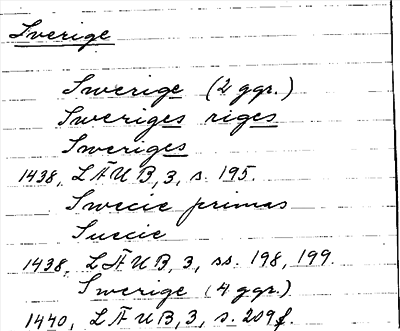 Sverige
Swerige (2 ggr.)
Sweriges riges
Sweriges
1438, LÄUB, 3, s. 195.
Swecie primas
Suecie
1438, LÄUB, 3, ss. 198, 199
Swerige (4 ggr.)
1440, LÄUB, 3, s. 209f.